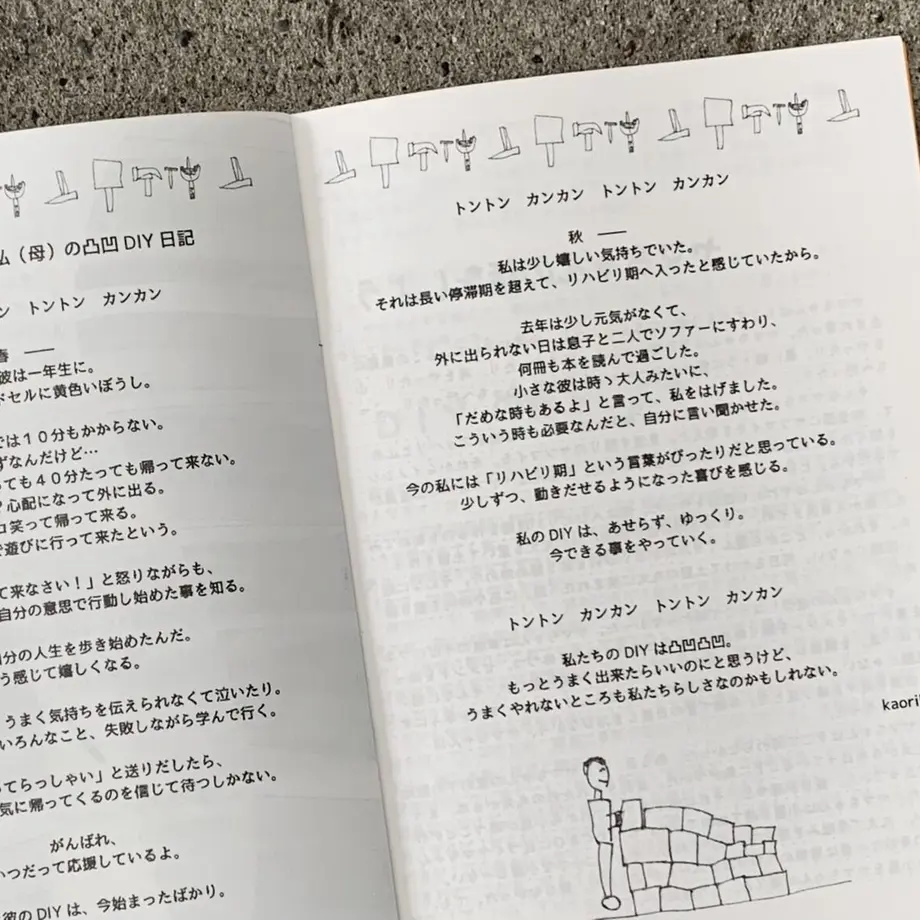 （母）の凸凹 DIY 日記
トントン　カンカン
春 ――
彼は一年生に。
ドセルに黄色いぼうし。
では１０分もかからない。
ずなんだけど…
ても４０分たっても帰って来ない。
心配になって外に出る。
笑って帰って来る。
遊びに行って来たという。
て来なさい！」と怒りながらも、
自分の意思で行動し始めた事を知る。
分の人生を歩き始めたんだ。
う感じて嬉しくなる。
うまく気持ちを伝えられなくて泣いたり。
いろんなこと、失敗しながら学んで行く。
ってらっしゃい」と送りだしたら、
気に帰ってくるのを信じて待つしかない。
がんばれ、
いつだって応援しているよ。
彼の DIY は、今始まったばかり。
トントン　カンカン　トントン　カンカン
秋 ――
私は少し嬉しい気持ちでいた。
それは長い停滞期を超えて、リハビリ期へ入ったと感じていたから。
去年は少し元気がなくて、
外に出られない日は息子と二人でソファーにすわり、
何冊も本を読んで過ごした。
小さな彼は時々大人みたいに、
「だめな時もあるよ」と言って、私をはげました。
こういう時も必要なんだと、自分に言い聞かせた。
今の私には「リハビリ期」という言葉がぴったりだと思っている。
少しずつ、動きだせるようになった喜びを感じる。
私の DIY は、あせらず、ゆっくり。
今できる事をやっていく。
トントン　カンカン　トントン　カンカン
私たちの DIY は凸凹凸凹。
もっとうまく出来たらいいのにと思うけど、
うまくやれないところも私たちらしさなのかもしれない。
kaori